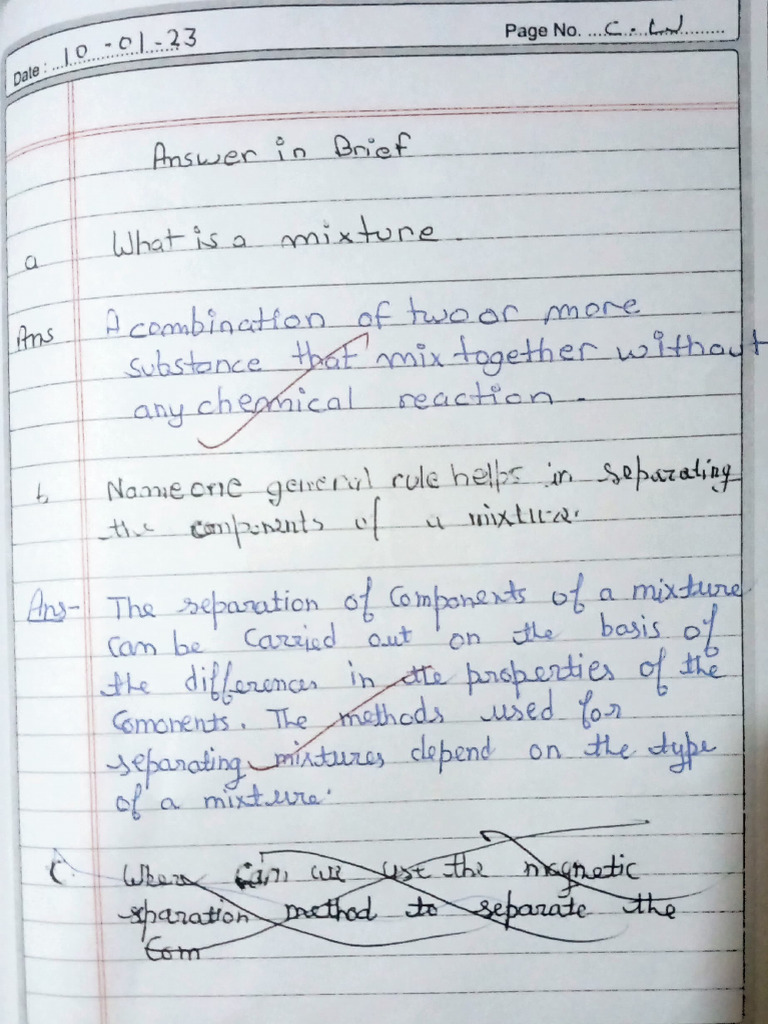 Date: 10-01-23 Page No. C.W
Answer in Brief
a What is a mixture.
Ans A combination of two or more
substance that mix together without
any chemical reaction.
b Name one general rule helps in separating
the components of a mixture.
Ans- The separation of Components of a mixture
can be Carried out on the basis of
the differences in the properties of the
Comonents. The methods used for
separating mixtures depend on the type
of a mixture.
C. When Can we use the magnetic
sparation method to separate the
Com